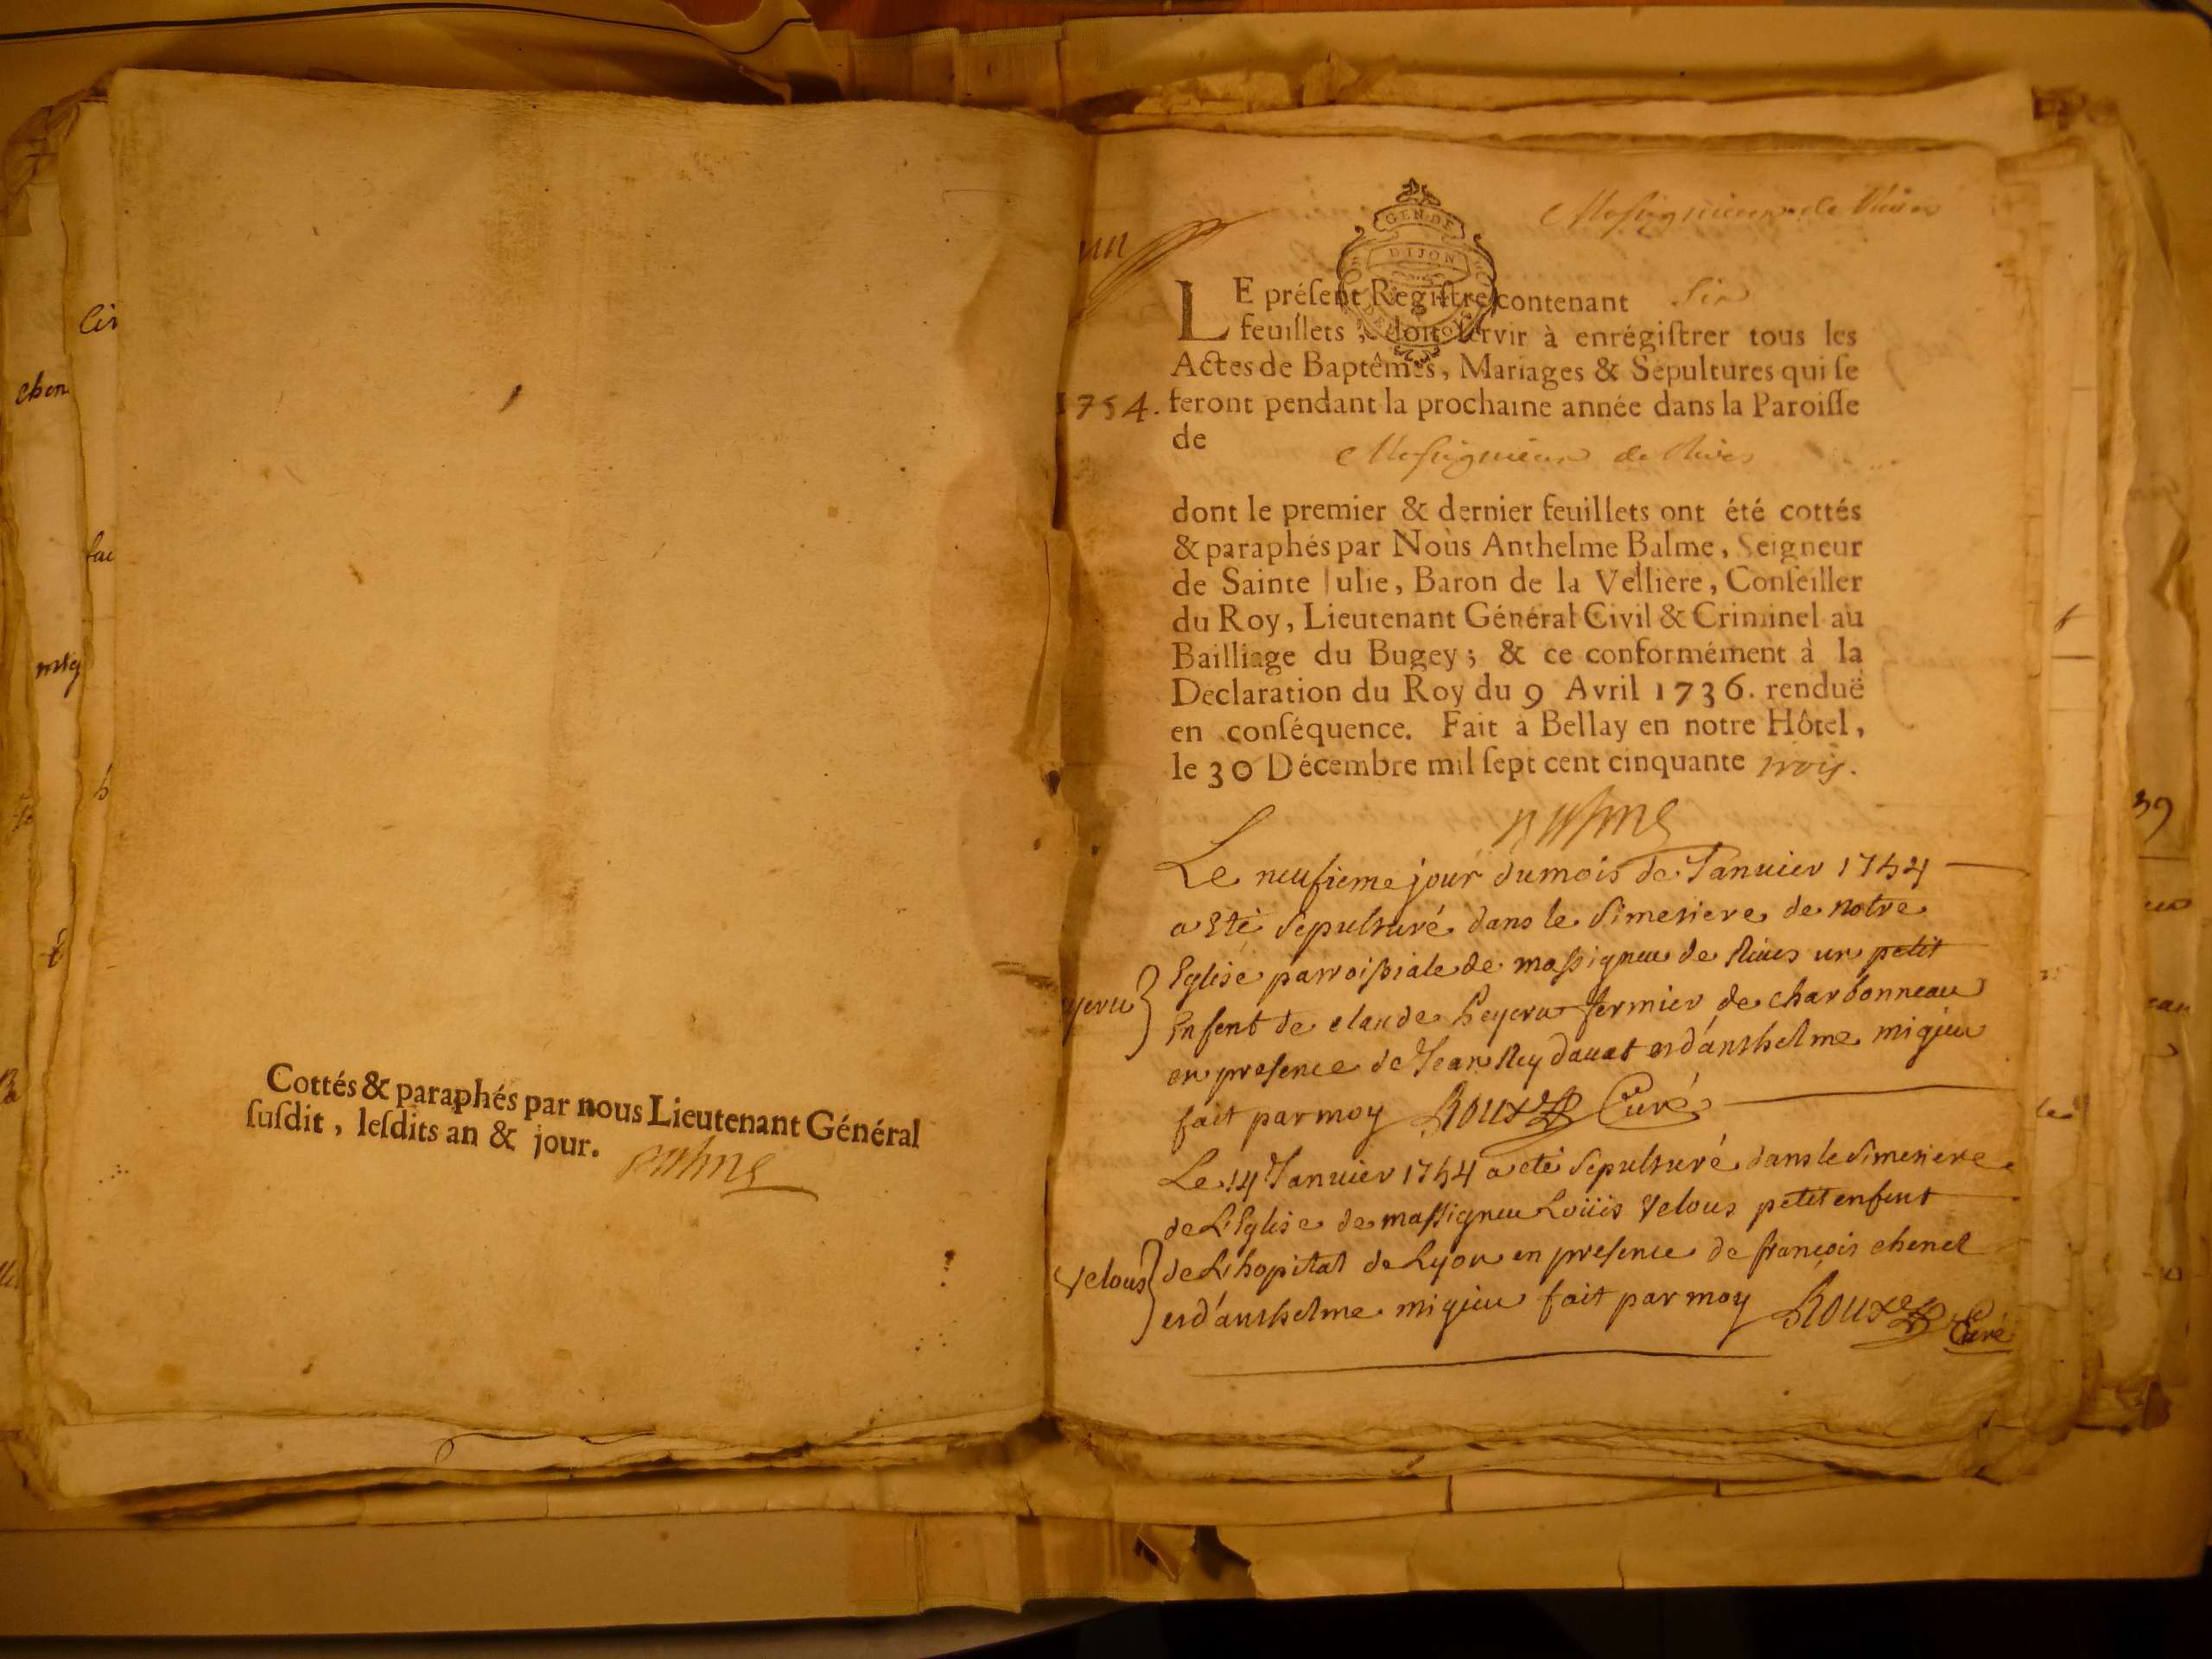 Cottés & paraphés par nous Lieutenant Général
ſuſdit, leſdits an & jour.
GEN. DE
DIJON
LE préſent Regiſtre contenant Six
feuillets, doit ſervir à enrégiſtrer tous les
Actes de Baptêmes, Mariages & Sépultures qui ſe
1754. feront pendant la prochaine année dans la Paroiſſe
de
dont le premier & dernier feuillets ont été cottés
& paraphés par Noùs Anthelme Balme, Seigneur
de Sainte Julie, Baron de la Velliere, Conſeiller
du Roy, Lieutenant Général Civil & Criminel au
Bailliage du Bugey; & ce conformément à la
Declaration du Roy du 9 Avril 1736. renduë
en conſéquence. Fait à Bellay en notre Hôtel,
le 30 Décembre mil ſept cent cinquante trois.
Le neufieme jour du mois de Januier 1754
a Eté Sepulturé dans le Simetiere de notre
Eglise parroissiale de massigneu de Riues un petit
Enfent de claude heyeru fermier de charbonneau
en presence de Jean Rey dauat et d'anthelme migieu
fait par moy Roux Curé
Le 14 Januier 1754 a eté Sepulturé dans le Simetiere
de L'Eglise de massigneu Loüis Velous petit enfent
Velous de L'hopital de Lyon en presence de françois chenel
et d'anthelme migieu fait par moy Roux Curé